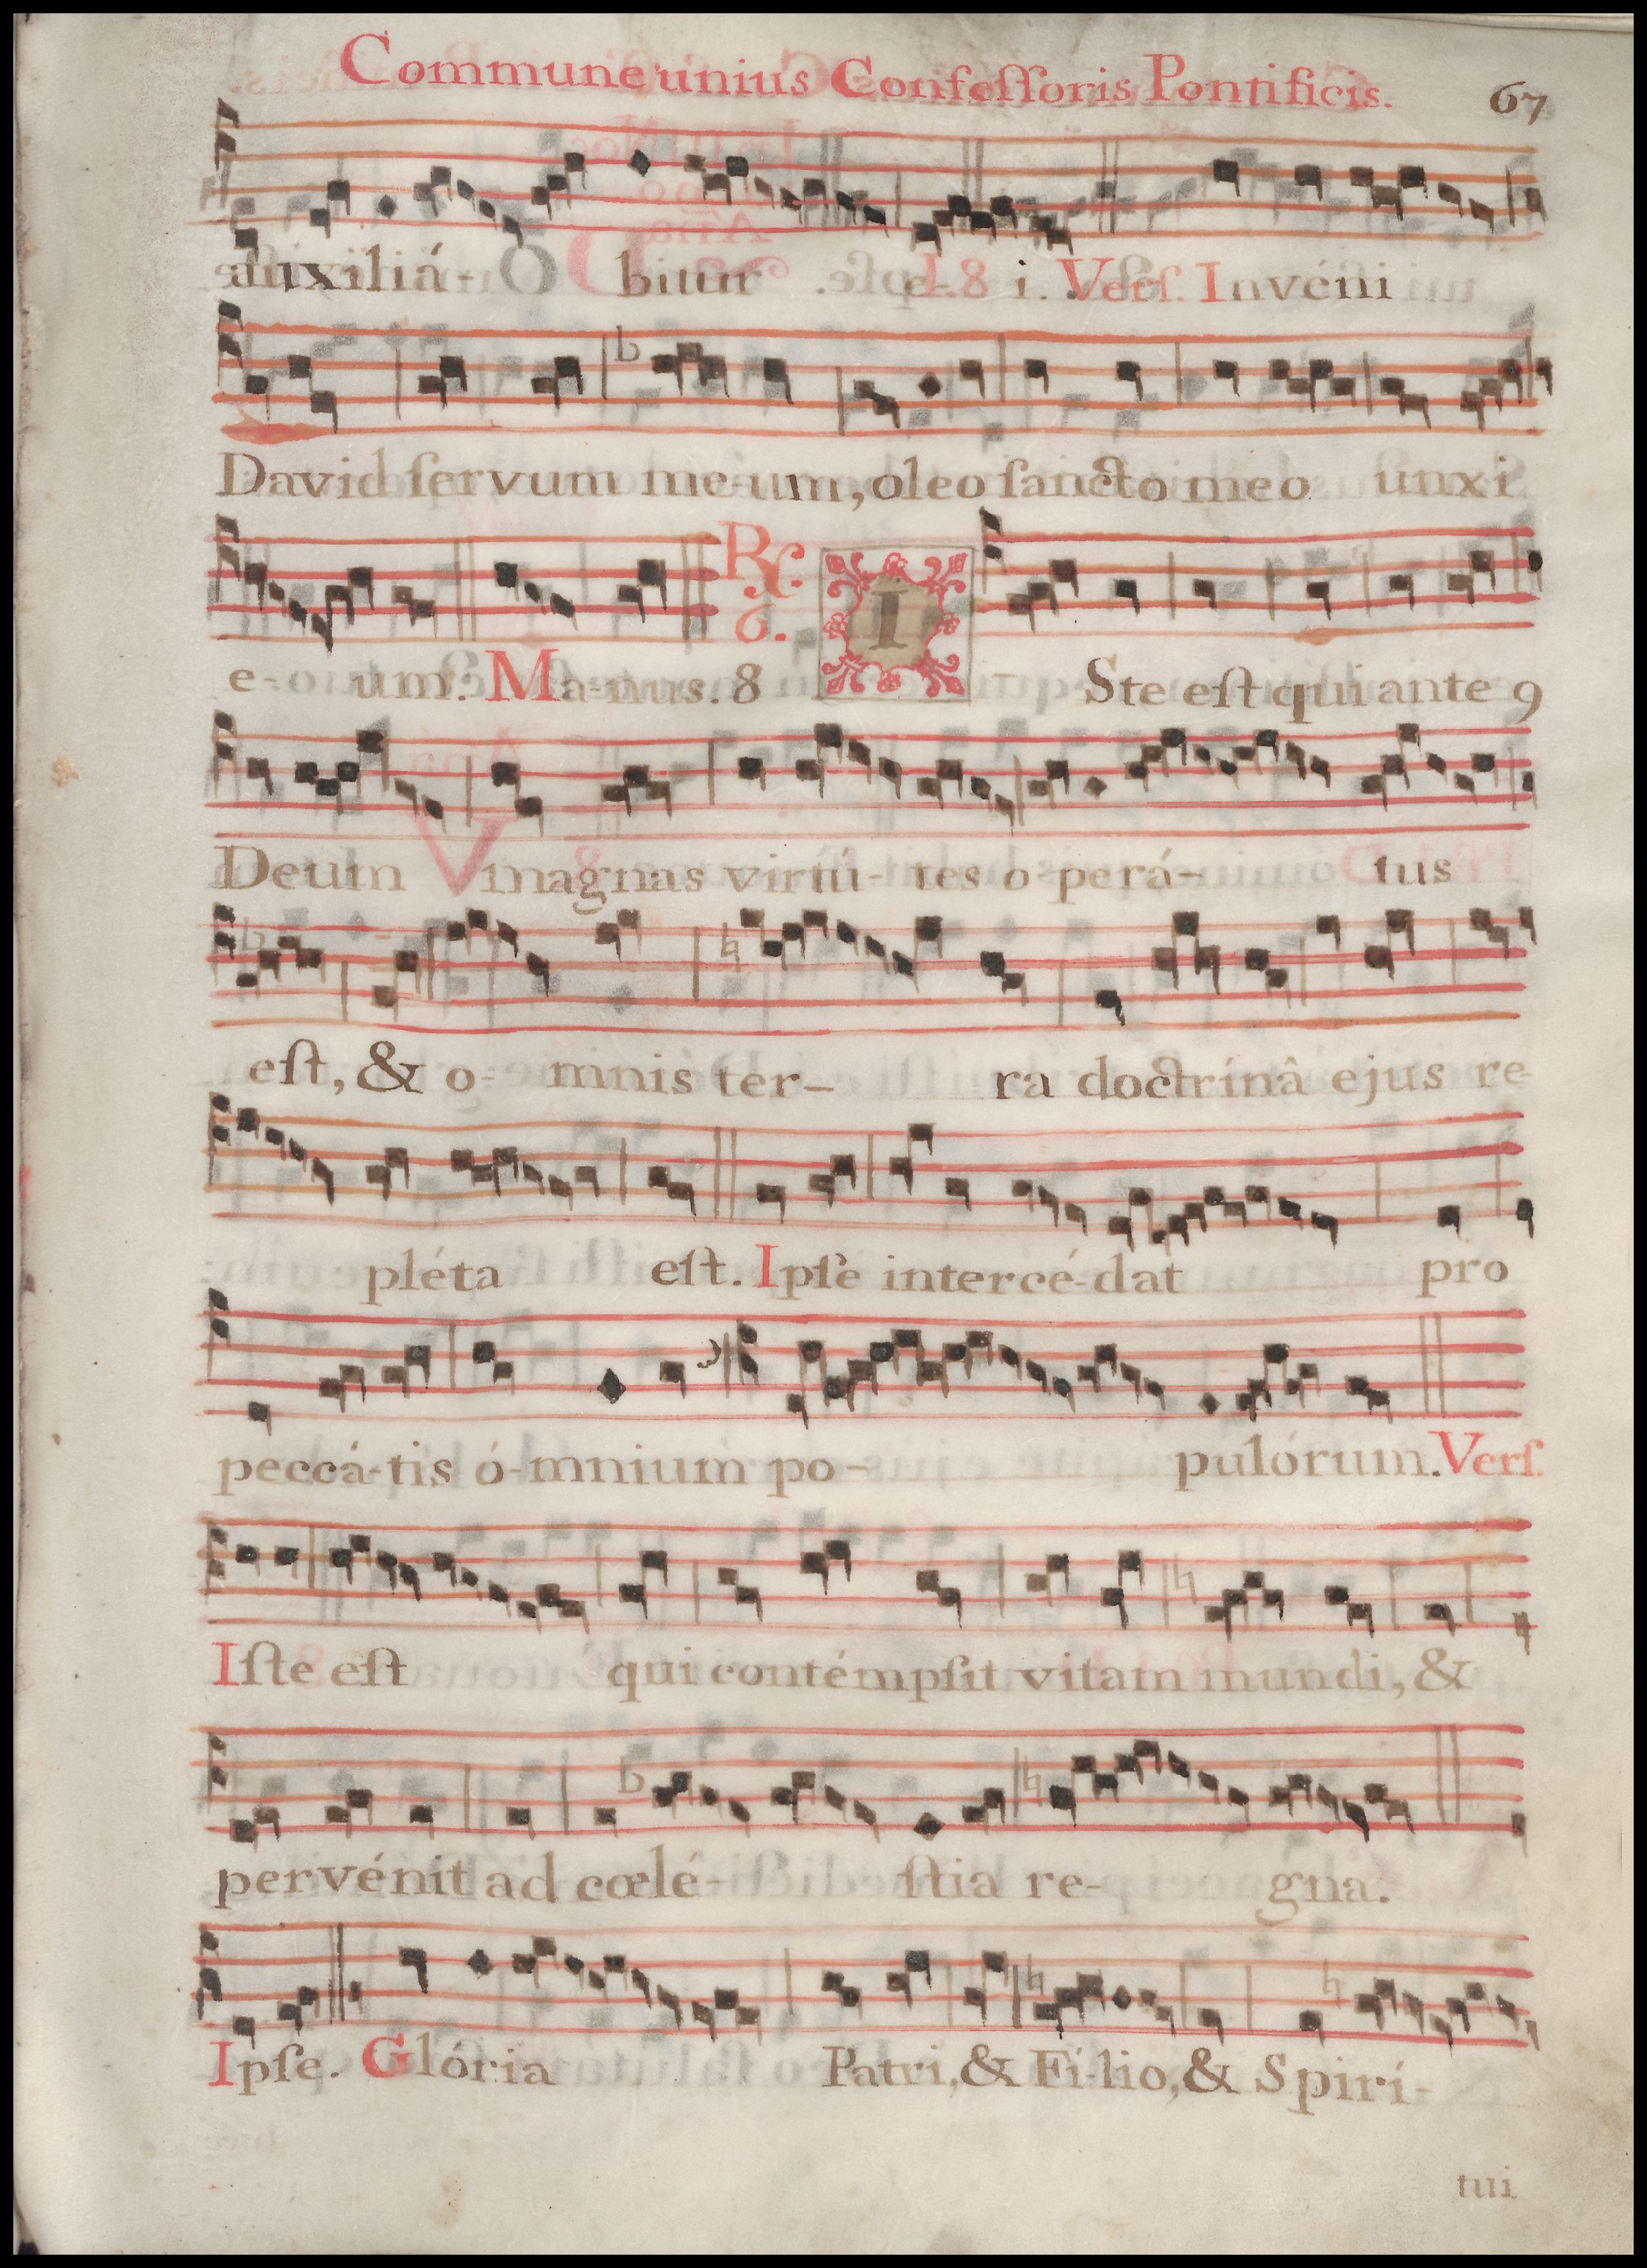 Commune unius Confeſſoris Pontificis. 67
auxiliá- bitur e- i. Verſ. Invéni
David ſervum me-um, oleo ſancto meo unxi
e- um. Ma-nus. 8 ℟. 6. I Ste eſt qui ante 9
Deum magnas virtú- tes o perá- tus
eſt, & o- mnis ter- ra doctrínâ ejus re-
pléta eſt. Ipſe intercé-dat pro
peccá-tis ó-mnium po- pulórum. Verſ.
Iſte eſt qui contémpſit vitam mundi, &
pervénit ad cœlé- ſtia re- gna.
Ipſe. Glória Patri, & Fí-lio, & Spirí-
tui